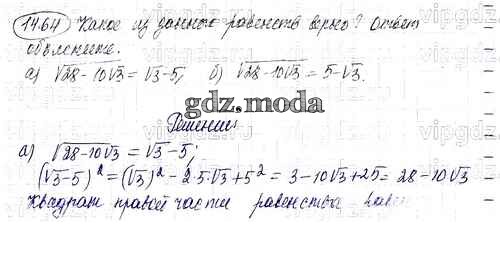 14.64 Какое из данных равенств верно? Ответ
объясните.
а) √28-10√3 = √3-5; б) √28-10√3 = 5-√3.
gdz.moda
Решение:
а) √28-10√3 = √3-5;
(√3-5)² = (√3)² - 2·5·√3 + 5² = 3-10√3+25 = 28-10√3
Квадрат правой части равенства равен